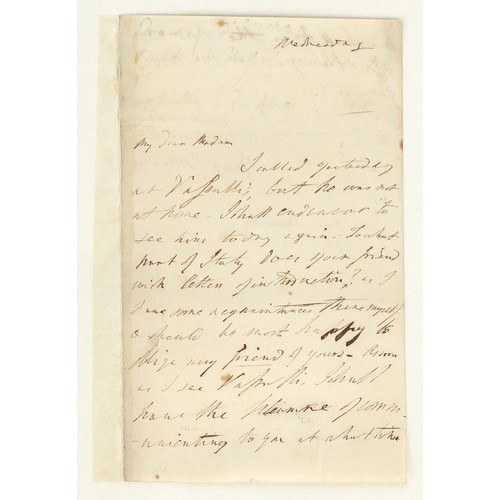 Wednesday
My dear Madam
I called yesterday
at Vassalli's, but he was not
at home - I shall endeavour to
see him today again - To what
part of Italy does your friend
wish letters of introduction? as I
have some acquaintances there myself
& should be most happy to
oblige any friend of yours - As soon
as I see Vassalli I shall
have the pleasure of comm-
unicating to you at what